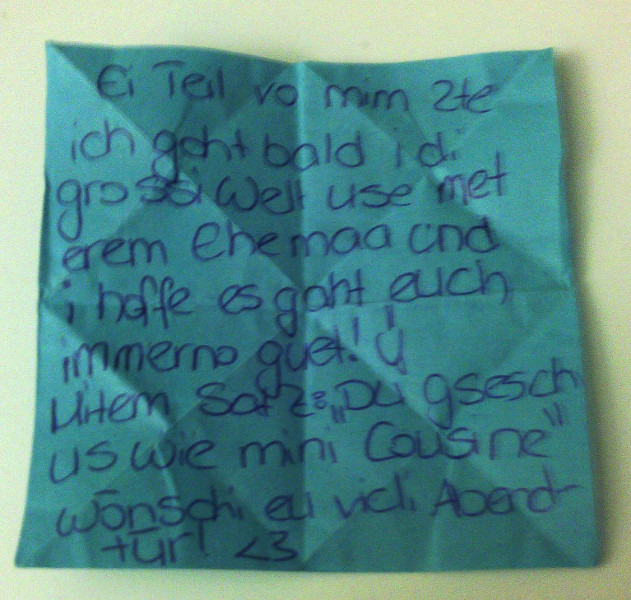 Ei Teil vo mim 2te
ich goht bald i di
grossi Welt use met
erem Ehemaa und
i hoffe es goht euch
immerno guet! U
Mitem Satz: "Du gsesch
us wie mini Cousine"
wönschi eu vieli Abend-
tür! <3